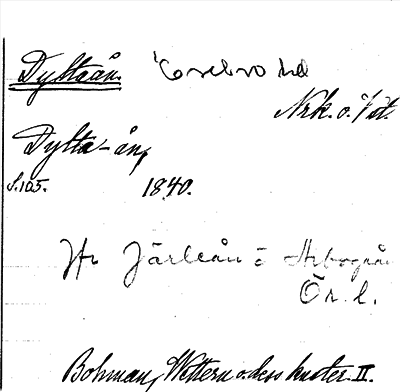 Dyltaån. Örebro hd
Nrk. o. Vstm.
Dylta-ån,
S. 105. 1840.
Jfr Järleån o Arbogaån
Ör. l.
Bohman, Wettern o. dess kuster. II.